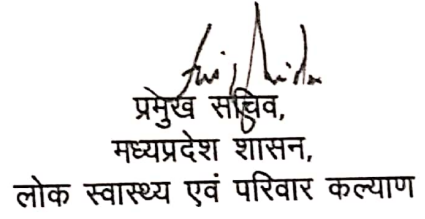 प्रमुख सचिव,
मध्यप्रदेश शासन,
लोक स्वास्थ्य एवं परिवार कल्याण